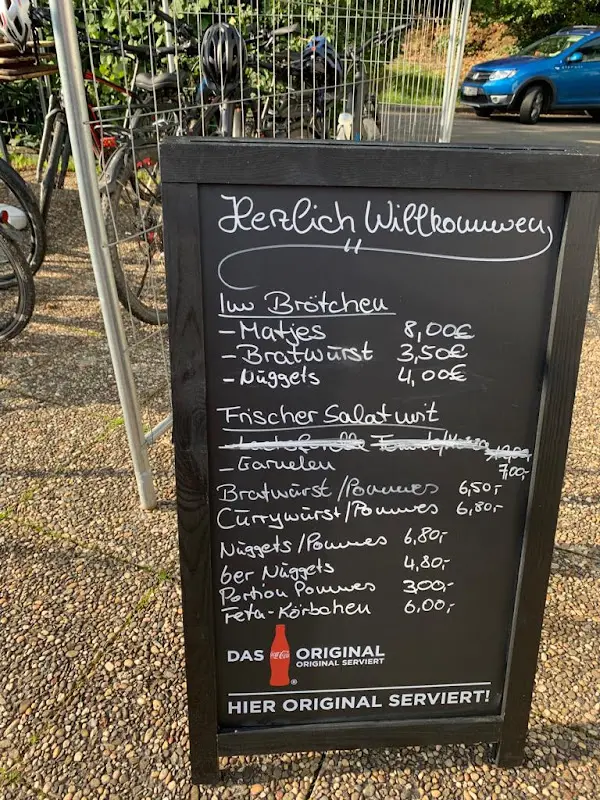 Herzlich Willkommen
Im Brötchen
- Matjes 8,00€
- Bratwurst 3,50€
- Nuggets 4,00€
Frischer Salat mit
- Garnelen 7,00-
Bratwurst/Pommes 6,50,-
Currywurst/Pommes 6,80,-
Nuggets/Pommes 6,80,-
6er Nuggets 4,80,-
Portion Pommes 3,00,-
Feta-Körbchen 6,00,-
DAS Coca-Cola ORIGINAL
ORIGINAL SERVIERT
HIER ORIGINAL SERVIERT!